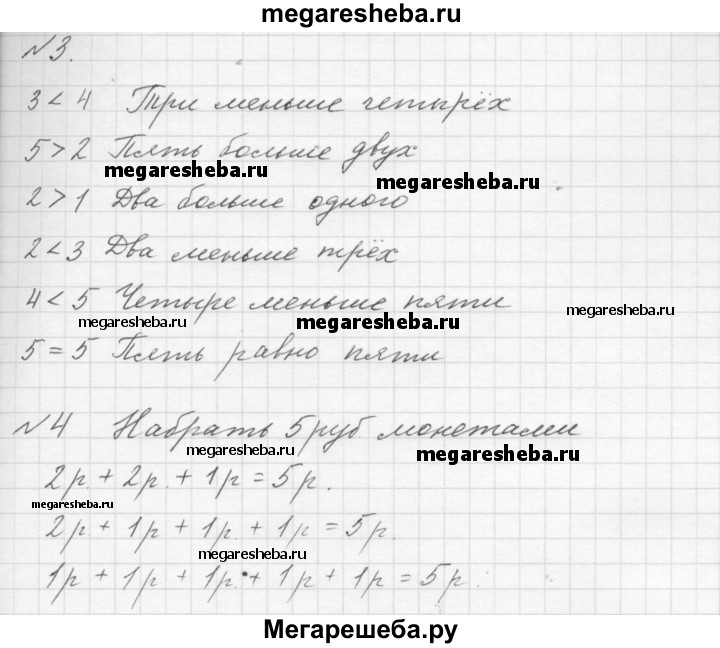 megaresheba.ru
№3.
3 < 4 Три меньше четырёх
5 > 2 Пять больше двух
megaresheba.ru
megaresheba.ru
2 > 1 Два больше одного
2 < 3 Два меньше трёх
4 < 5 Четыре меньше пяти
megaresheba.ru
megaresheba.ru
megaresheba.ru
5 = 5 Пять равно пяти
№4 Набрать 5 руб монетами
megaresheba.ru
megaresheba.ru
2р. + 2р. + 1р = 5р.
megaresheba.ru
2р + 1р + 1р. + 1р = 5р.
megaresheba.ru
1р + 1р + 1р. + 1р + 1р = 5р.
Мегарешеба.ру